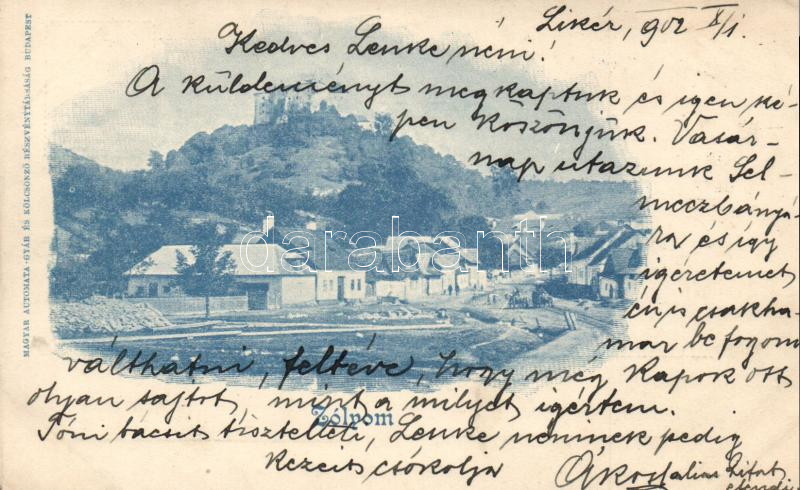 Likér, 902 X/1.
Kedves Lenke néni!
A küldeményt megkaptuk és igen ké-
pen köszönjük. Vasár-
nap utazunk Sel-
meczbányá-
ra és így
igéretemet
én is csakha-
mar be fogom
válthatni, feltéve, hogy még kapok ott
olyan sajtot, mint a milyet igértem.
Zólyom
Tóni bácsit tiszteli, Lenke néninek pedig
kezeit csókolja
Ákos
alias
MAGYAR AUTOMATA-GYÁR ÉS KÖLCSÖNZŐ RÉSZVÉNYTÁRSASÁG BUDAPEST
darabanth